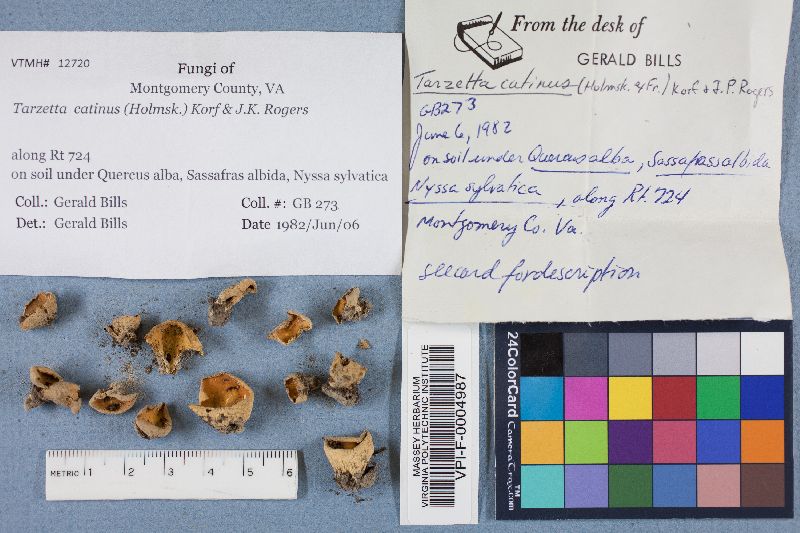 VTMH# 12720
Fungi of
Montgomery County, VA
Tarzetta catinus (Holmsk.) Korf & J.K. Rogers
along Rt 724
on soil under Quercus alba, Sassafras albida, Nyssa sylvatica
Coll.: Gerald Bills Coll. #: GB 273
Det.: Gerald Bills Date 1982/Jun/06
From the desk of
GERALD BILLS
Tarzetta catinus (Holmsk. ex Fr.) Korf & J.P. Rogers
GB273
June 6, 1982
on soil under Quercus alba, Sassafras albida
Nyssa sylvatica, along Rt. 724
Montgomery Co. Va.
see card for description
METRIC 1 2 3 4 5 6
MASSEY HERBARIUM
VIRGINIA POLYTECHNIC INSTITUTE
VPI-F-0004987
24ColorCard CameraTrax.com
TM